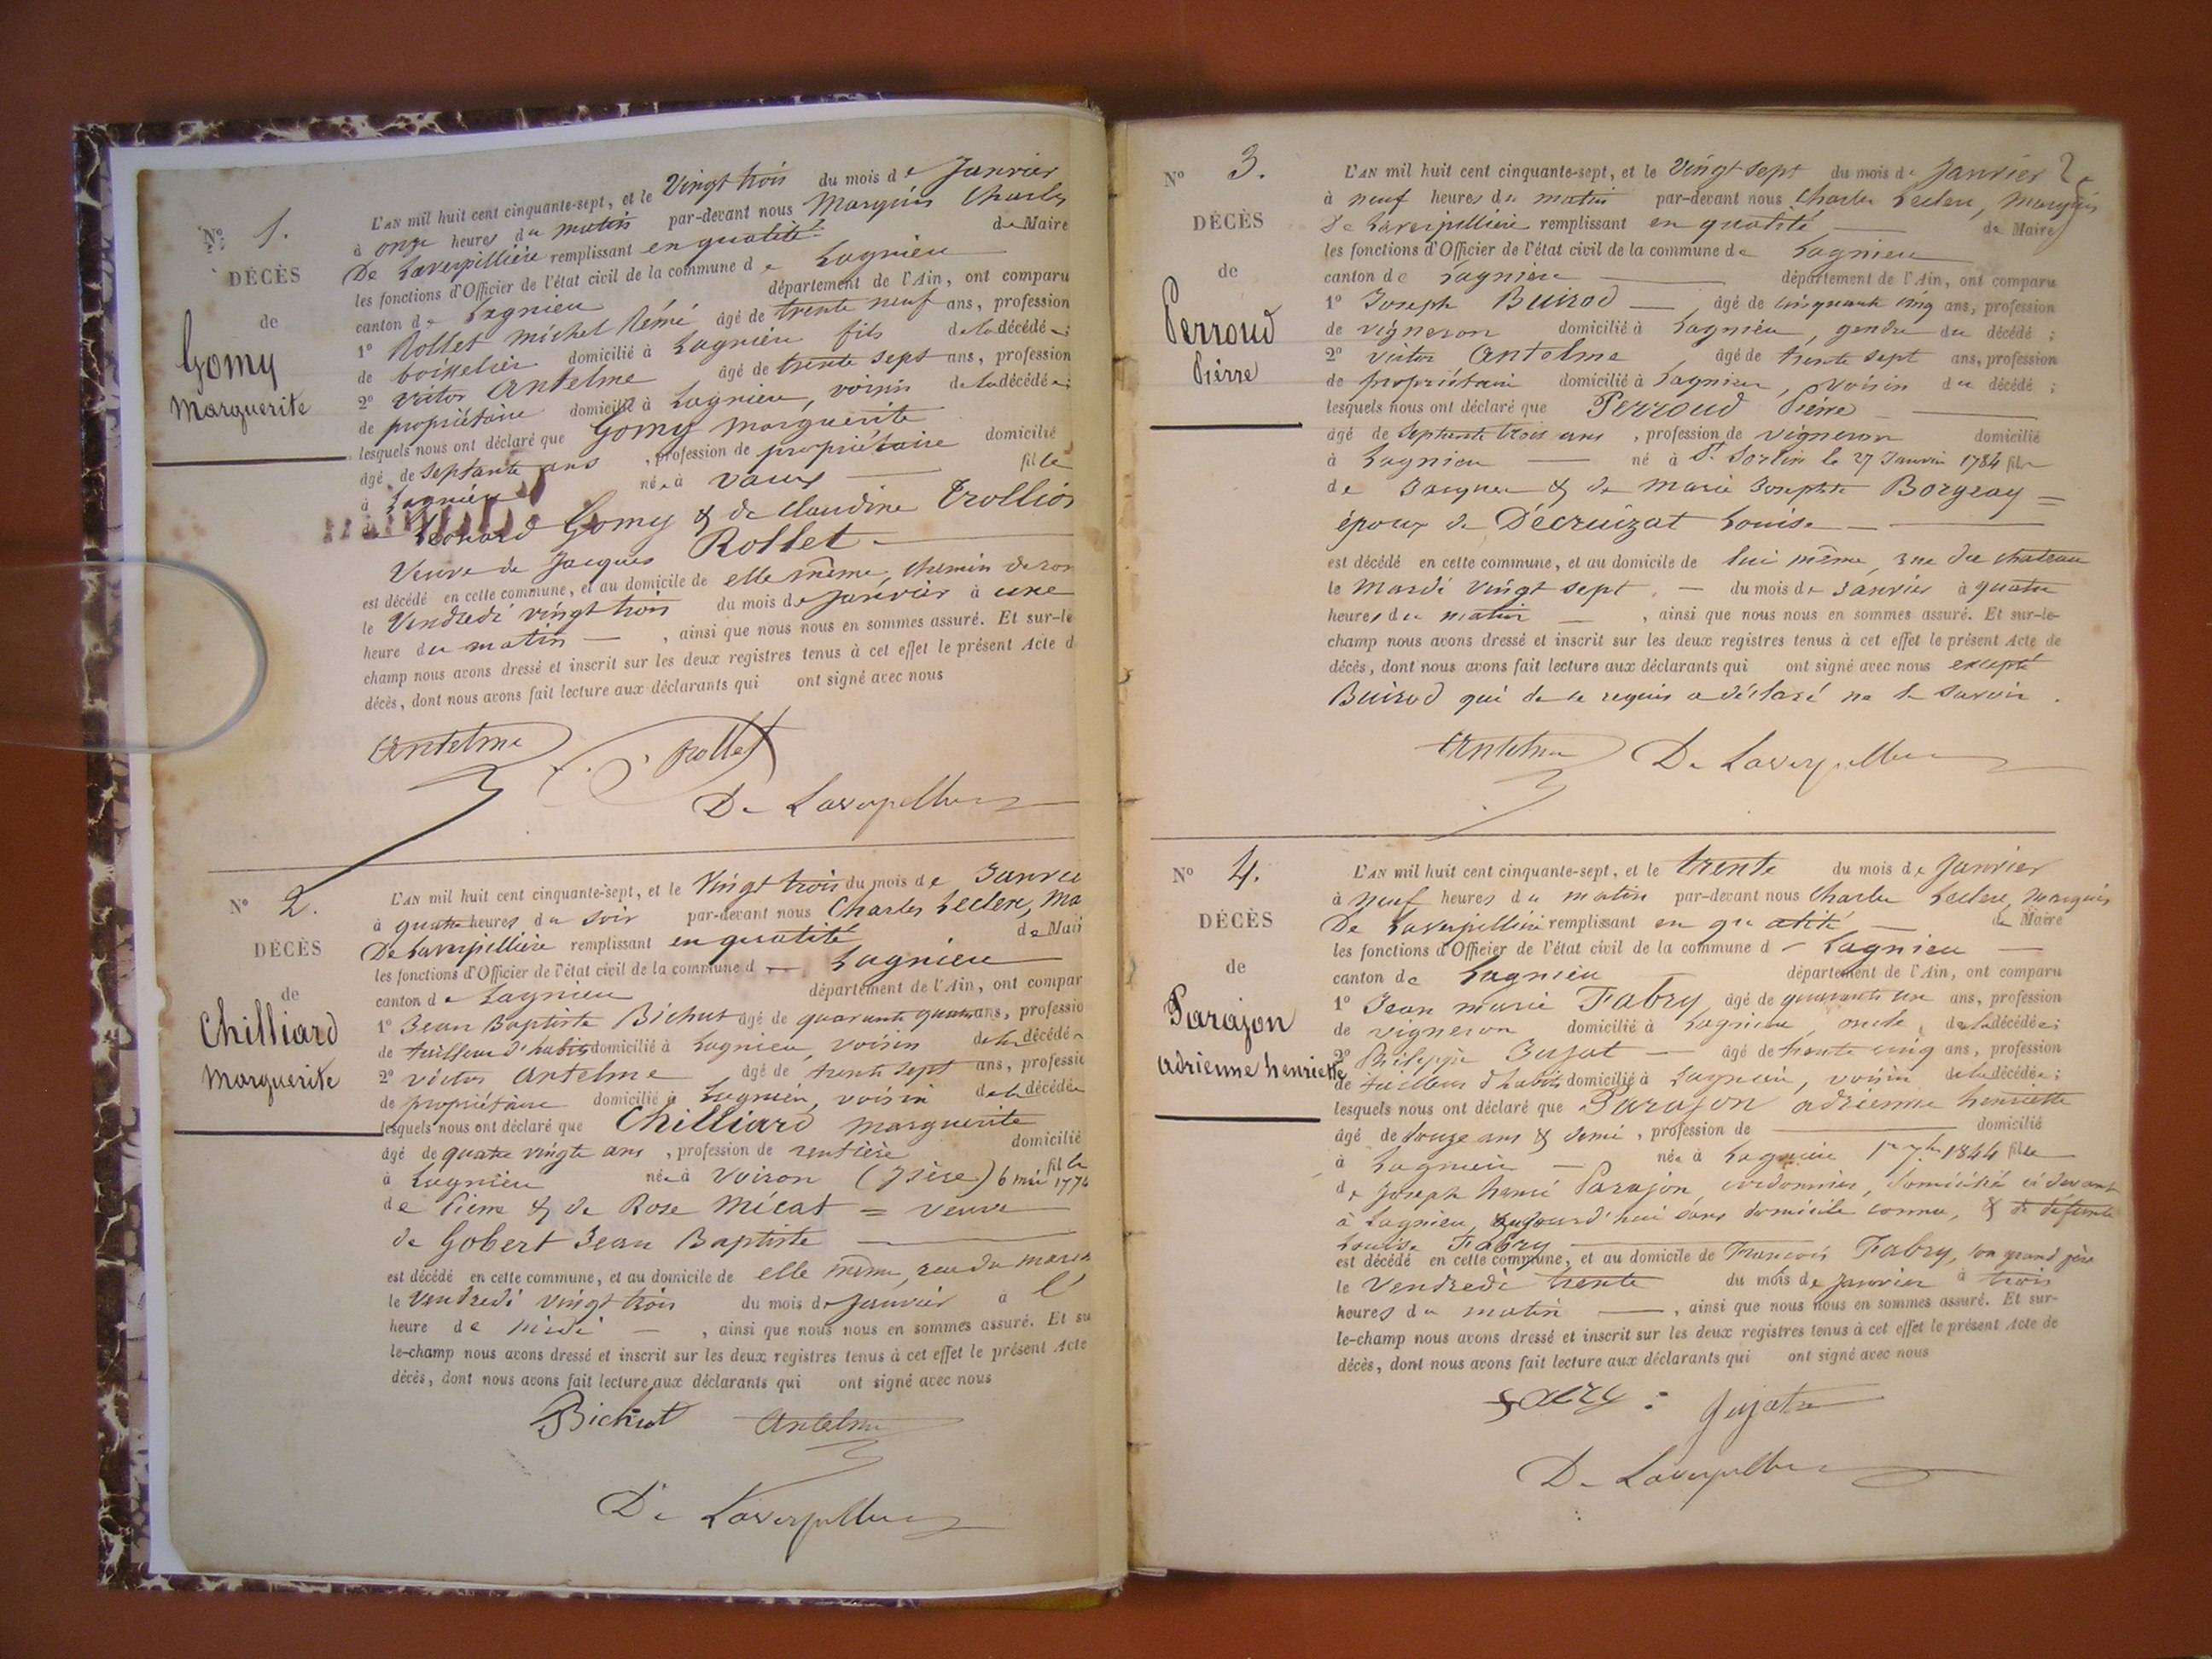 N° 1.
DÉCÈS
de
Gomy
Marguerite
L'AN mil huit cent cinquante-sept, et le Vingt trois du mois de Janvier
à onze heures du matin par-devant nous Marquis Charles
De Laverpillière remplissant en qualité de Maire
les fonctions d'Officier de l'état civil de la commune de Lagnieu
canton de Lagnieu département de l'Ain, ont comparu
1° Rollet Michel Rémi âgé de trente neuf ans, profession
de boisselier domicilié à Lagnieu fils de la décédée;
2° Victor Antelme âgé de trente sept ans, profession
de propriétaire domicilié à Lagnieu, voisin de la décédée;
lesquels nous ont déclaré que Gomy Marguerite
âgé de septante ans, profession de propriétaire domicilié
à Lagnieu née à Vaux fille
de Léonard Gomy & de Claudine Trollios
Veuve de Jacques Rollet
est décédé en cette commune, et au domicile de elle même, chemin de ron
le Vendredi vingt trois du mois de Janvier à une
heure du matin, ainsi que nous nous en sommes assuré. Et sur-le
champ nous avons dressé et inscrit sur les deux registres tenus à cet effet le présent Acte d
décès, dont nous avons fait lecture aux déclarants qui ont signé avec nous
Antelme Rollet
De Laverpillière
N° 2.
DÉCÈS
de
Chilliard
Marguerite
L'AN mil huit cent cinquante-sept, et le Vingt trois du mois de Janvie
à quatre heures du soir par-devant nous Charles Leclerc, Ma
De Laverpillière remplissant en qualité de Mair
les fonctions d'Officier de l'état civil de la commune d Lagnieu
canton de Lagnieu département de l'Ain, ont compar
1° Jean Baptiste Bichut âgé de quarante quatre ans, professio
de tailleur d'habits domicilié à Lagnieu, voisin de la décédée
2° Victor Antelme âgé de trente sept ans, professio
de propriétaire domicilié à Lagnieu, voisin de la décédée
lesquels nous ont déclaré que Chilliard Marguerite
âgé de quatre vingts ans, profession de rentière domicilié
à Lagnieu née à Voiron (Isère) 6 mai 1776 fille
de Pierre & de Rose Micat = veuve
de Gobert Jean Baptiste
est décédé en cette commune, et au domicile de elle même, rue du march
le Vendredi vingt trois du mois de Janvier à l'
heure de midi, ainsi que nous nous en sommes assuré. Et su
le-champ nous avons dressé et inscrit sur les deux registres tenus à cet effet le présent Acte
décès, dont nous avons fait lecture aux déclarants qui ont signé avec nous
Bichut Antelme
De Laverpillière
N° 3.
DÉCÈS
de
Perroud
Pierre
L'AN mil huit cent cinquante-sept, et le Vingt sept du mois de Janvier 2
à neuf heures du matin par-devant nous Charles Leclerc, Marquis
De Laverpillière remplissant en qualité de Maire
les fonctions d'Officier de l'état civil de la commune de Lagnieu
canton de Lagnieu département de l'Ain, ont comparu
1° Joseph Buirod âgé de cinquante cinq ans, profession
de vigneron domicilié à Lagnieu, gendre du décédé;
2° Victor Antelme âgé de trente sept ans, profession
de propriétaire domicilié à Lagnieu, voisin du décédé;
lesquels nous ont déclaré que Perroud Pierre
âgé de septante trois ans, profession de vigneron domicilié
à Lagnieu né à St Sorlin le 27 Janvier 1784 fils
de Jacques & de Marie Josephte Borgeay =
époux de Décruizat Louise
est décédé en cette commune, et au domicile de lui même, rue du chateau
le Mardi vingt sept du mois de Janvier à quatre
heures du matin, ainsi que nous nous en sommes assuré. Et sur-le-
champ nous avons dressé et inscrit sur les deux registres tenus à cet effet le présent Acte de
décès, dont nous avons fait lecture aux déclarants qui ont signé avec nous excepté
Buirod qui de ce requis a déclaré ne le savoir.
Antelme De Laverpillière
N° 4.
DÉCÈS
de
Parajon
Adrienne henriette
L'AN mil huit cent cinquante-sept, et le trente du mois de Janvier
à neuf heures du matin par-devant nous Charles Leclerc, Marquis
De Laverpillière remplissant en qualité de Maire
les fonctions d'Officier de l'état civil de la commune d Lagnieu
canton de Lagnieu département de l'Ain, ont comparu
1° Jean Marie Fabry âgé de quarante un ans, profession
de vigneron domicilié à Lagnieu, oncle de la décédée;
2° Philippe Jujat âgé de trente cinq ans, profession
de tailleur d'habits domicilié à Lagnieu, voisin de la décédée;
lesquels nous ont déclaré que Parajon adrienne henriette
âgé de douze ans & demi, profession de domicilié
à Lagnieu née à Lagnieu 1er 7bre 1844 fille
de Joseph henri Parajon, cordonnier, domicilié ci devant
à Lagnieu, aujourd'hui sans domicile connu, & de défunte
Louise Fabry
est décédé en cette commune, et au domicile de François Fabry, son grand père
le Vendredi trente du mois de Janvier à trois
heures du matin, ainsi que nous nous en sommes assuré. Et sur-
le-champ nous avons dressé et inscrit sur les deux registres tenus à cet effet le présent Acte de
décès, dont nous avons fait lecture aux déclarants qui ont signé avec nous
Fabry Jujat
De Laverpillière